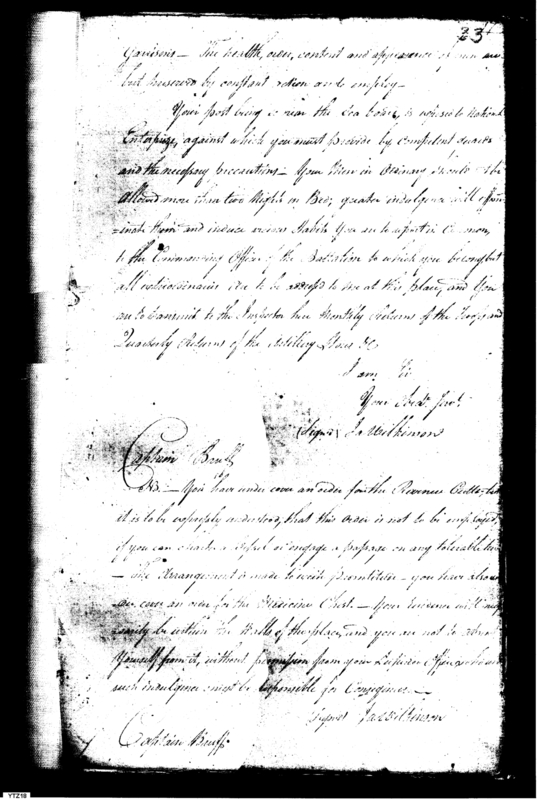 23
Garrisons — The health, order, content and appearance of men are
but preserved by constant action and employ —
Your post being so near the Sea board, is
Enterprize, against which you must provide by competent Guards
and the necessary precautions — Your Men in Ordinary should not be
allowed more than two Nights in Bed; greater indulgence will effem-
-inate them and induce vicious Habits You are to report in Common,
to the Commanding Officer of the Battalion to which you belong but
all extraordinaries are to be addressed to me at this place, and You
are to transmit to the Inspector here Monthly Returns of the Troops and
Quarterly Returns of the Artillery Stores &c
I am Sir
Your Obedt. Servt.
(Signed) Ja Wilkinson
Captain Bruff
NB. — You have under cover an order for the Revenue Cutter, but
it is to be expressly understood, that this Order is not to be employed,
if you can charter a Vessel or engage a passage on any tolerable terms
— The Arrangement is made to
an order for the Medicine Chest. — Your residence will
be within the Walls of the place, and you are not to absent
Yourself from it, without permission from your Superior Officer who
such indulgence must be responsible for Consequences. —
Signed Ja Wilkinson
Captain Bruff
YTZ18